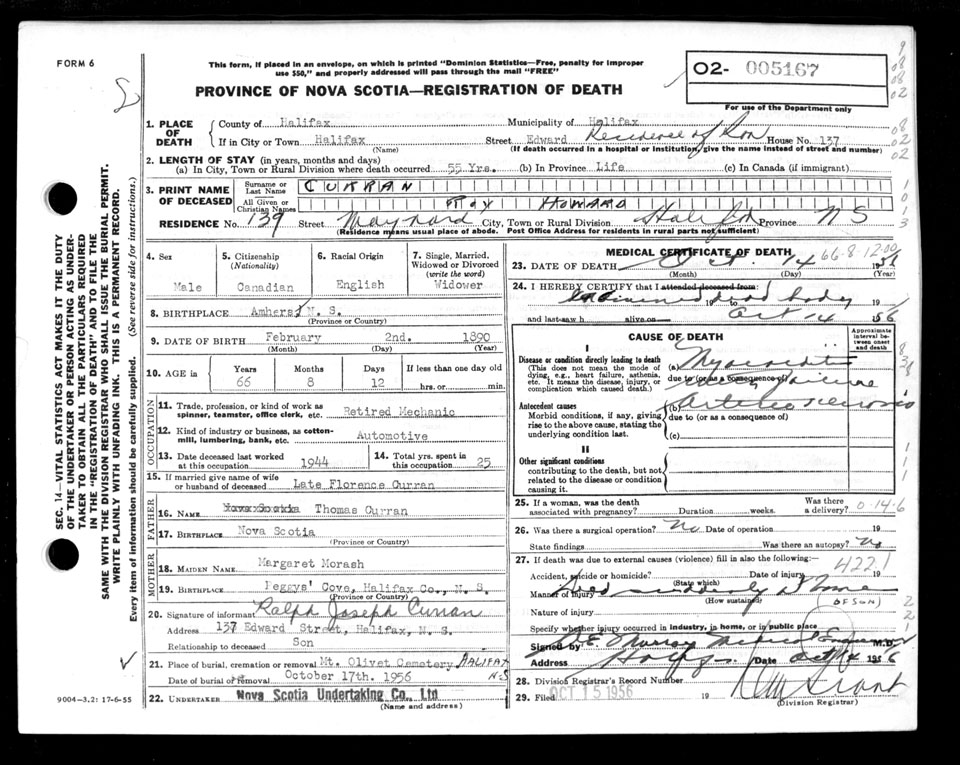 FORM 6
This form, if placed in an envelope, on which is printed "Dominion Statistics—Free, penalty for improper
use $50," and properly addressed will pass through the mail "FREE"
PROVINCE OF NOVA SCOTIA—REGISTRATION OF DEATH
02- 005167
For use of the Department only
1. PLACE OF DEATH
County of Halifax Municipality of Halifax
Residence of Son
If in City or Town Halifax Street Edward House No. 137
(Name) (If death occurred in a hospital or institution, give the name instead of street and number)
2. LENGTH OF STAY (in years, months and days)
(a) In City, Town or Rural Division where death occurred 55 Yrs. (b) In Province Life (c) In Canada (if immigrant)
3. PRINT NAME OF DECEASED
Surname or Last Name CURRAN
All Given or Christian Names ROY HOWARD
RESIDENCE No. 139 Street Maynard City, Town or Rural Division Halifax Province N S
(Residence means usual place of abode. Post Office Address for residents in rural parts not sufficient)
4. Sex
Male
5. Citizenship
(Nationality)
Canadian
6. Racial Origin
English
7. Single, Married,
Widowed or Divorced
(write the word)
Widower
8. BIRTHPLACE Amherst N. S.
(Province or Country)
9. DATE OF BIRTH February 2nd. 1890
(Month) (Day) (Year)
10. AGE in Years Months Days If less than one day old
66 8 12 hrs. or min.
OCCUPATION
11. Trade, profession, or kind of work as
spinner, teamster, office clerk, etc. Retired Mechanic
12. Kind of industry or business, as cotton-
mill, lumbering, bank, etc. Automotive
13. Date deceased last worked
at this occupation 1944
14. Total yrs. spent in
this occupation 25
15. If married give name of wife
or husband of deceased Late Florence Curran
FATHER
16. NAME Thomas Curran
17. BIRTHPLACE Nova Scotia
(Province or Country)
MOTHER
18. MAIDEN NAME Margaret Morash
19. BIRTHPLACE Peggys' Cove, Halifax Co., N. S.
(Province or Country)
20. Signature of informant Ralph Joseph Curran
Address 137 Edward Street, Halifax, N. S.
Relationship to deceased Son
21. Place of burial, cremation or removal Mt. Olivet Cemetery HALIFAX
Date of burial or removal October 17th. 1956 N-S
22. UNDERTAKER Nova Scotia Undertaking Co., Ltd
(Name and address)
MEDICAL CERTIFICATE OF DEATH
66-8-12-00
23. DATE OF DEATH Oct. 14 1956
(Month) (Day) (Year)
24. I HEREBY CERTIFY that I attended deceased from:
Examined dead body
19 to 19
and last saw h alive on Oct 14 1956
CAUSE OF DEATH
Approximate
interval
between onset
and death
I
Disease or condition directly leading to death
(This does not mean the mode of
dying, e.g., heart failure, asthenia,
etc. It means the disease, injury, or
complication which caused death.)
(a) Myocarditis
due to (or as a consequence of)
Failure
Antecedent causes
Morbid conditions, if any, giving
rise to the above cause, stating the
underlying condition last.
(b) Arteriosclerosis
due to (or as a consequence of)
(c)
II
Other significant conditions
contributing to the death, but not
related to the disease or condition
causing it.
25. If a woman, was the death
associated with pregnancy? Duration weeks. Was there
a delivery? 0-14-6
26. Was there a surgical operation? No Date of operation 19
State findings Was there an autopsy? No
27. If death was due to external causes (violence) fill in also the following:
4221
Accident, suicide or homicide? Date of injury 19
(State which)
Manner of injury Died suddenly at home
(How sustained) (OF SON)
Nature of injury
Specify whether injury occurred in industry, in home, or in public place
Signed by Murray Medical Examiner M.D.
Address Halifax Date Oct 14 1956
28. Division Registrar's Record Number
29. Filed OCT 15 1956 19
(Division Registrar)
SEC. 14—VITAL STATISTICS ACT MAKES IT THE DUTY
OF THE UNDERTAKER OR PERSON ACTING AS UNDER-
TAKER TO OBTAIN ALL THE PARTICULARS REQUIRED
IN THE "REGISTRATION OF DEATH" AND TO FILE THE
SAME WITH THE DIVISION REGISTRAR WHO SHALL ISSUE THE BURIAL PERMIT.
WRITE PLAINLY WITH UNFADING INK. THIS IS A PERMANENT RECORD.
Every item of information should be carefully supplied. (See reverse side for instructions.)
9004—3.2: 17-6-55